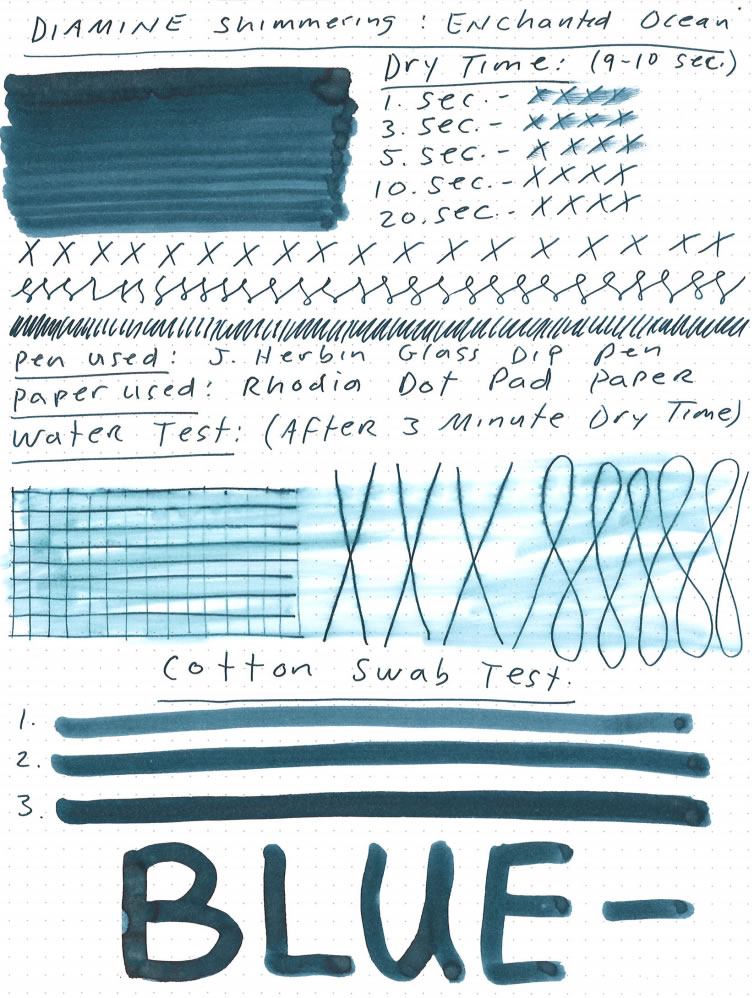 DIAMINE Shimmering : Enchanted Ocean
Dry Time: (9-10 sec.)
1. sec. - x x x x
3. sec. - x x x x
5. sec. - x x x x
10. sec. - x x x x
20. sec. - x x x x
X X X X X X X X X X X X X X X X X X
Pen used: J. Herbin Glass Dip Pen
Paper used: Rhodia Dot Pad Paper
Water Test: (After 3 Minute Dry Time)
X X X
Cotton Swab Test.
1.
2.
3.
BLUE-